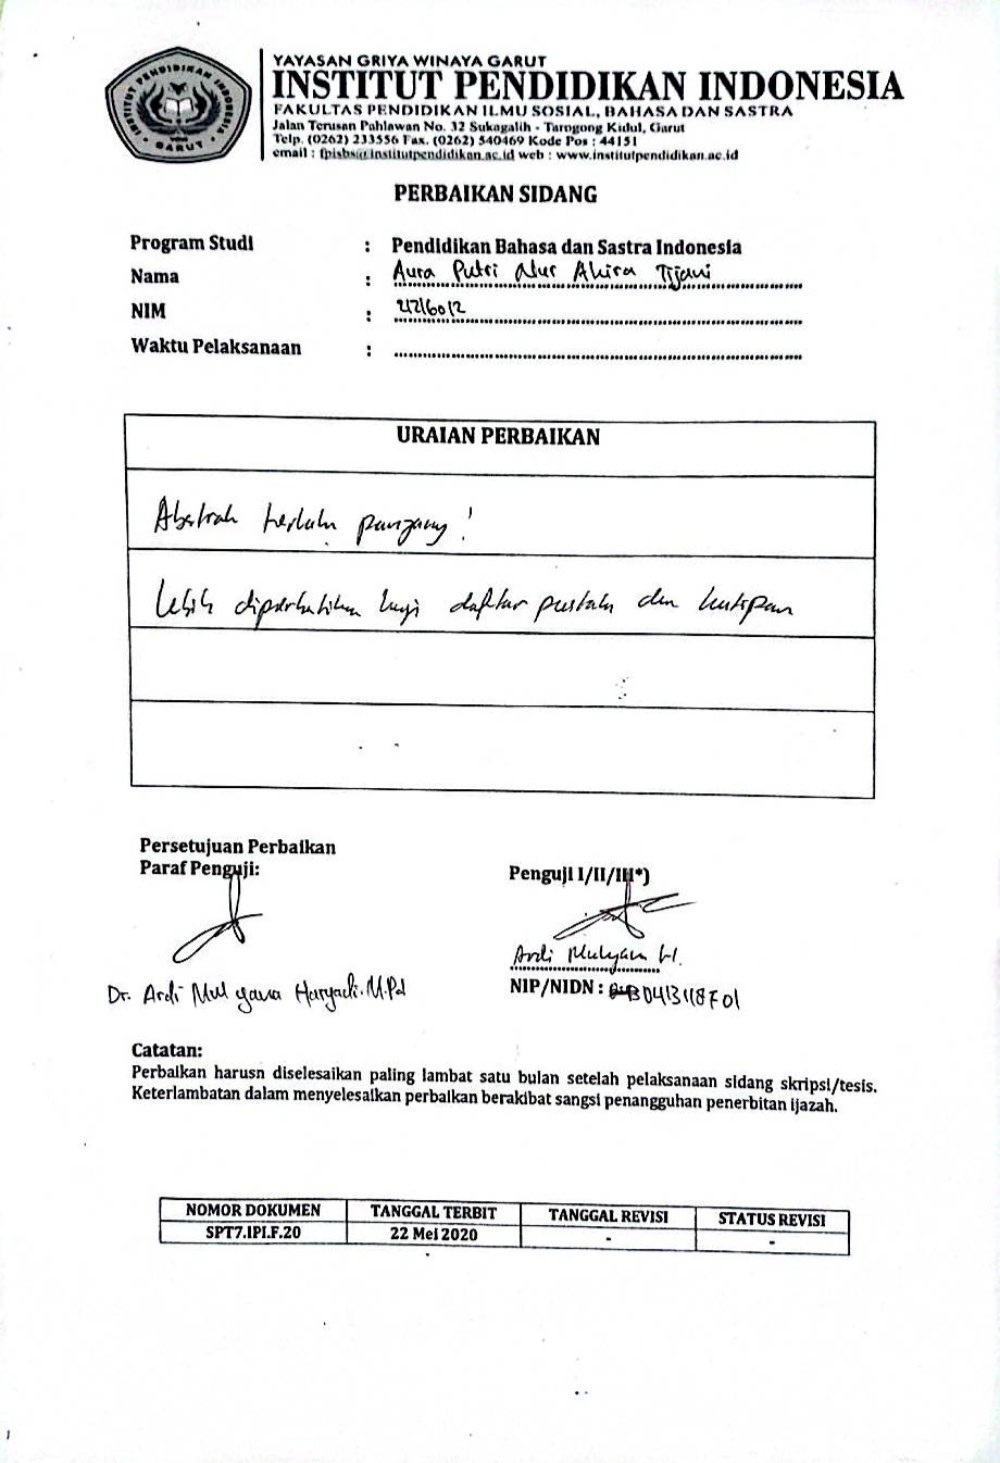 YAYASAN GRIYA WINAYA GARUT
INSTITUT PENDIDIKAN INDONESIA
FAKULTAS PENDIDIKAN ILMU SOSIAL, BAHASA DAN SASTRA
Jalan Terusan Pahlawan No. 32 Sukagalih - Tarogong Kidul, Garut
Telp. (0262) 233556 Fax. (0262) 540469 Kode Pos : 44151
email : fpisbs@institutpendidikan.ac.id web : www.institutpendidikan.ac.id
INSTITUT PENDIDIKAN INDONESIA
GARUT
PERBAIKAN SIDANG
Program Studi : Pendidikan Bahasa dan Sastra Indonesia
Nama : Aura Putri Nur Ahira Tijani
NIM : 21216012
Waktu Pelaksanaan :
URAIAN PERBAIKAN
Abstrak terlalu panjang!
Lebih diperhatikan lagi daftar pustaka dan kutipan
Persetujuan Perbaikan
Paraf Penguji:
Penguji I/II/III*)
Ardi Mulyana H.
Dr. Ardi Mulyana Haryadi. M.Pd
NIP/NIDN : 0413118701
Catatan:
Perbaikan harusn diselesaikan paling lambat satu bulan setelah pelaksanaan sidang skripsi/tesis.
Keterlambatan dalam menyelesaikan perbaikan berakibat sangsi penangguhan penerbitan ijazah.
NOMOR DOKUMEN TANGGAL TERBIT TANGGAL REVISI STATUS REVISI
SPT7.IPI.F.20 22 Mei 2020 - -